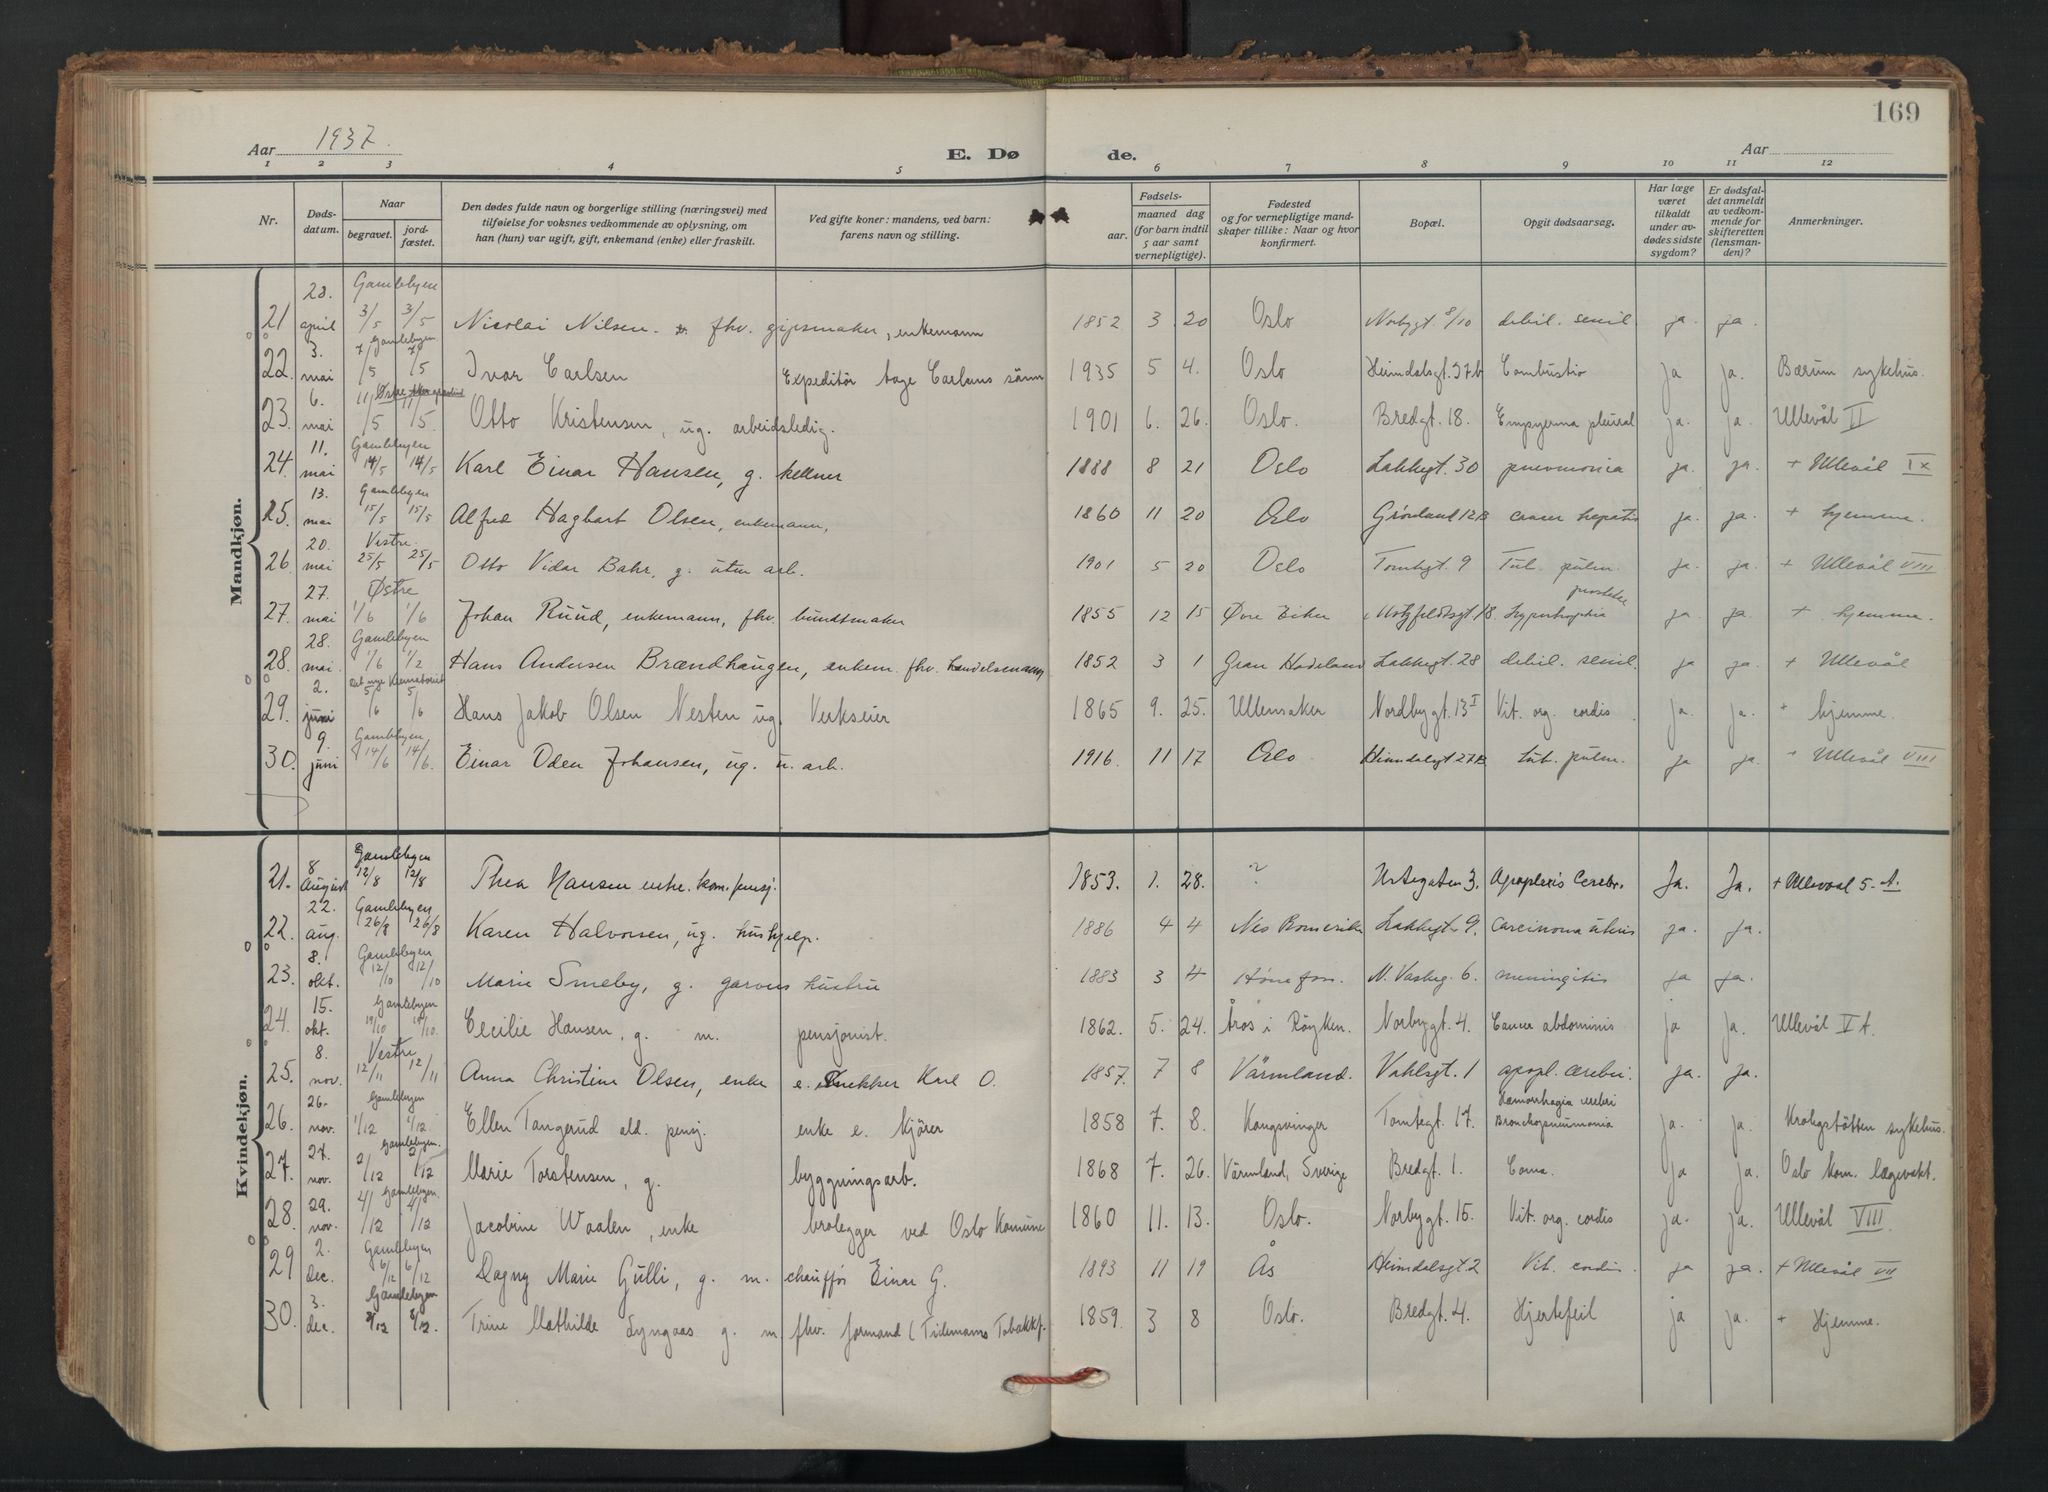 169
Aar 1937. E. Dø de. Aar
1 2 3 4 5 6 7 8 9 10 11 12
Nr. Døds-datum. Naar begravet. jord-fæstet. Den dødes fulde navn og borgerlige stilling (næringsvei) med tilføielse for voksnes vedkommende av oplysning, om han (hun) var ugift, gift, enkemand (enke) eller fraskilt. Ved gifte koner: mandens, ved barn: farens navn og stilling. Fødsels- aar. maaned dag (for barn indtil 5 aar samt vernepligtige). Fødested og for vernepligtige mand-skaper tillike: Naar og hvor konfirmert. Bopæl. Opgit dødsaarsag. Har læge været tilkaldt under av-dødes sidste sygdom? Er dødsfal-det anmeldt av vedkom-mende for skifteretten (lensman-den)? Anmerkninger.
Mandkjøn.
21 23. april Gamlebyen 3/5 3/5 Nicolai Nilsen fhv. gipsmaker, enkemann 1852 3 20 Oslo Norbygt. 8/10 debil. senil ja. ja.
22. 3. mai Gamlebyen 7/5 7/5 Ivar Carlsen Expeditör Aage Carlsens sönn 1935 5 4. Oslo Heimdalsgt. 37b Combustio ja ja. Bærum sykehus.
23. 6. mai Østre 11/5 11/5. Otto Kristensen, ug. arbeidsledig. 1901 6. 26. Oslo. Bredgt. 18. Empyema pleural ja. ja. Ullevål II
24. 11. mai Gamlebyen 14/5 14/5 Karl Einar Hansen, g. kellner 1888 8 21 Oslo Lakkegt. 30 pneumonia ja. ja. + Ullevål IX
25. 13. mai Gamlebyen 15/5 15/5 Alfred Hagbart Olsen, enkemann, 1860 11 20 Oslo Grønland 12B cancer hepatis ja. ja. + hjemme.
26. 20. mai Vestre. 25/5 25/5 Otto Vidar Bahr, g. uten arb. 1901 5 20 Oslo Tomtegt. 9 Tub. pulm. ja. ja. + Ullevål VIII
27. 27. mai Østre 1/6 1/6 Johan Ruud, enkemann, fhv. buntmaker 1855 12 15 Øvre Eiker Motzfeldtsgt 18 hypertrophia prostatae ja ja. + hjemme.
28. 28. mai. Gamlebyen 1/6 1/2 Hans Andersen Brændhaugen, enkem. fhv. handelsmann 1852 3 1 Gran Hadeland Lakkegt. 28 debil. senil. ja ja. + Ullevål
29. 2. juni Det nye Krematoriet 5/6 5/6 Hans Jakob Olsen Nesten ug. Verkseier 1865 9. 25. Ullensaker Nordbygt. 13 I Vit. org. cordis. ja. ja. + hjemme.
30. 9. juni Gamlebyen 14/6 14/6. Einar Oden Johansen, ug. u. arb. 1916. 11 17 Oslo Heimdalsgt 27B tub. pulm. ja ja. + Ullevål VIII
Kvindekjøn.
21. 8 August Gamlebyen 12/8 12/8 Thea Hansen enke. kom. pensj. 1853. 1. 28. ? Urtegaten 3. Apoplexis Cerebr. Ja. Ja. + Ullevaal 5. A.
22. 22. aug. Gamlebyen 26/8 26/8 Karen Halvorsen, ug. hushjelp. 1886 4 4 Nes Romerike Lakkegt 9. Carcinoma uteris ja. ja.
23. 8. okt. Gamlebyen 12/10 12/10 Marie Smeby, g. garvers hustru 1883 3 4 Hönefoss. N. Vaskeg. 6. meningitis ja ja.
24. 15. okt. Gamlebyen 19/10 19/10. Cecilie Hansen, g. m. pensjonist. 1862. 5. 24. Åros i Röyken. Norbygt. 4. Cancer abdominis ja ja. Ullevål V A.
25. 8. nov. Vestre 12/11 12/11 Anna Christine Olsen, enke e. snekker Karl O. 1857. 7 8 Värmland. Vahlsgt. 1 apopl. cerebri. ja. ja.
26. 26. nov. Gamlebyen 1/12 1/12. Ellen Tangerud ald. pensj. enke e. kjörer 1858 7. 8. Kongsvinger Tomtegt. 17. Hæmorrhagia cerebri Bronchopneumonia ja. ja. Krohgstötten sykehus.
27. 27. nov. Gamlebyen. 2/12 2/12 Marie Torstensen, g. byggningsarb. 1868 7. 26. Värmland, Sverige Bredgt. 1. Coma. ja ja. Oslo kom. lægevakt.
28. 29. nov. Gamlebyen. 4/12 4/12 Jacobine Waalen, enke brolegger ved Oslo Komune 1860 11. 13. Oslo. Norbygt. 15. Vit. org. cordis ja. ja. Ullevål VIII
29 2. dec. Gamlebyen 6/12 6/12 Dagny Marie Gulli, g. m. chauffør Einar G. 1893 11 19 Ås Heimdalsgt. 2 Vit. cordis. ja ja. + Ullevål VII
30. 3. dec. Gamlebyen 8/12 8/12. Trine Mathilde Lyngaas g. m. fhv. formand (Tidemanns Tobakkf. 1859. 3 8 Oslo. Bredgt. 4. Hjertefeil ja ja. + Hjemme.